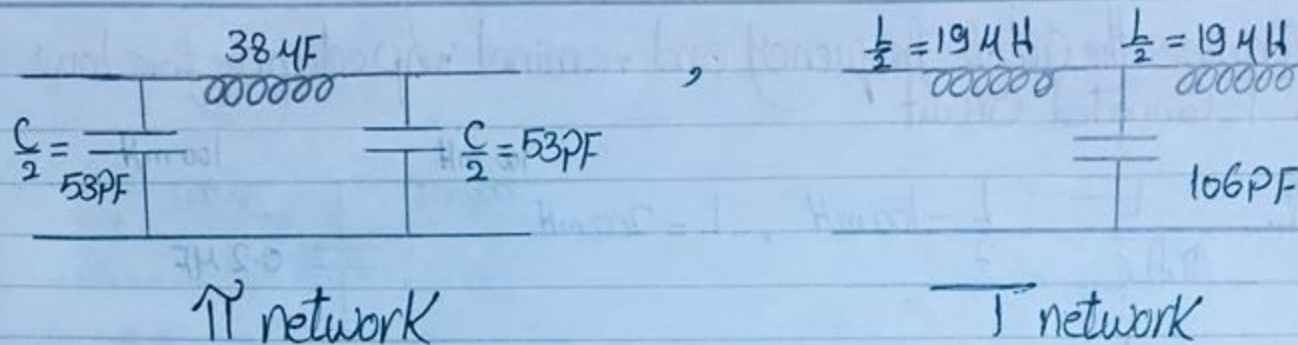 38 μF
C/2 = 53PF
C/2 = 53PF
,
L/2 = 19 μH
L/2 = 19 μH
106PF
π network
T network